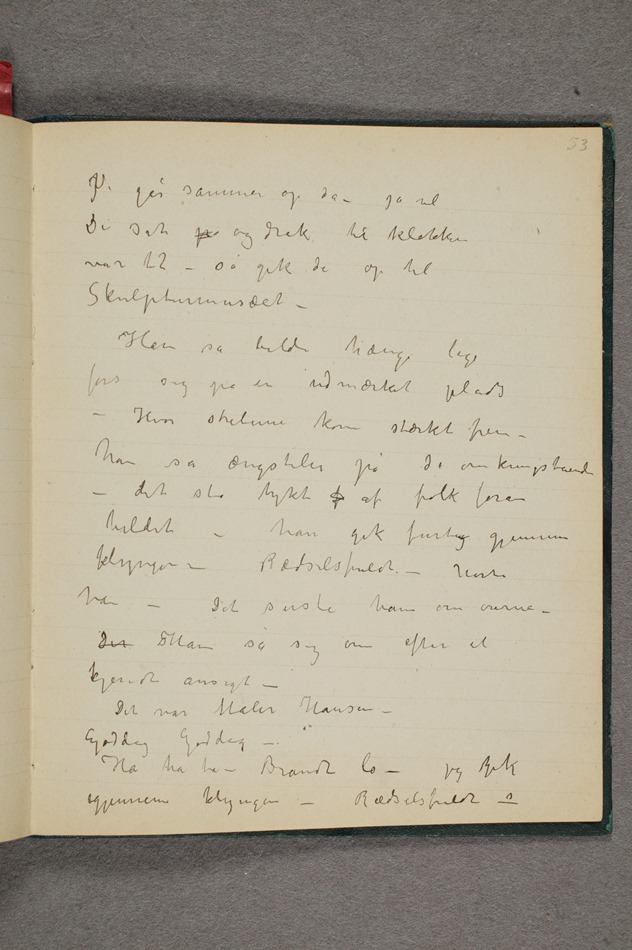 53
Vi går sammen op da – ja vel
De sat på og drak til klokken
var 12 – så gik de op til
Skulpturmusæet –
Han så billdet hænge lige
fors sig på en udmærket plads
– Hvor strelerne kom stærkt frem –
han så ængsteligt på de omkringstående
– det sto tykt af folk foran
billdet – han gik hurtig gjennem
klyngen – Rædselsfuldt – hørte
han – Det suste ham om ørerne –
Der Han så sig om efter et
kjendt ansigt –
Det var Maler Hansen –
Goddag Goddag –
Ha ha ha – Brandt lo – jeg gik
igjennem klyngen – Rædselsfuldt s